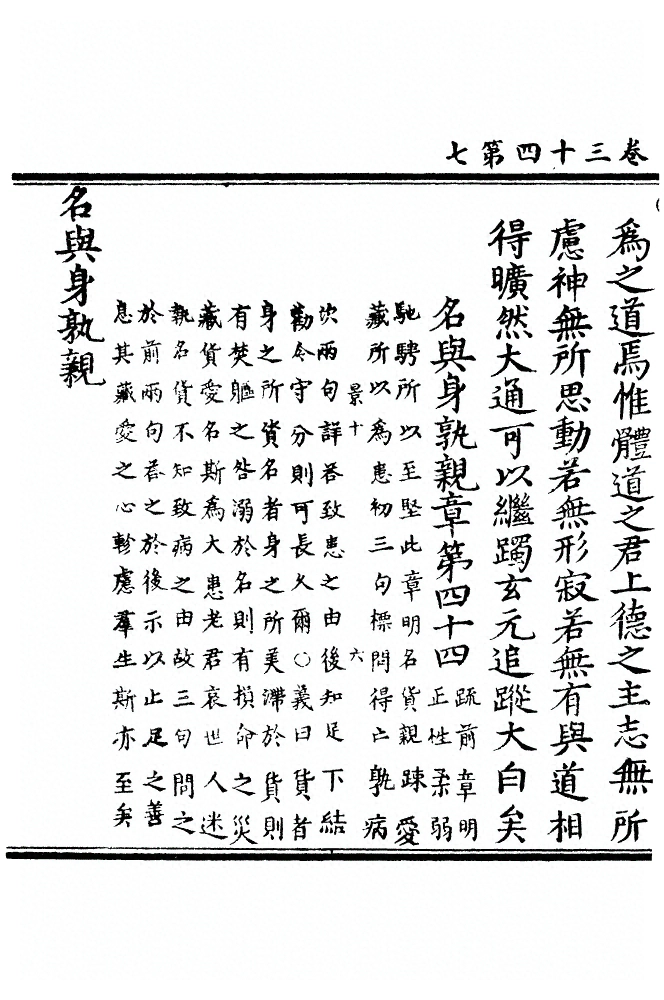 卷三十四第七
爲之道焉惟體道之君上德之主志無所
慮神無所思動若無形寂若無有與道相
得曠然大通可以繼躅玄元追蹤大白矣
名與身孰親章第四十四
疏前章明
正性柔弱
馳騁所以至堅此章明名貨親踈愛
藏所以爲患初三句標問得亡孰病
景十 六
次兩句詳荅致患之由後知足下結
勸令守分則可長久爾○義曰貨者
身之所資名者身之所美滯於貨則
有焚軀之咎溺於名則有損命之災
藏貨愛名斯爲大患老君哀世人迷
執名貨不知致病之由故三句問之
於前兩句荅之於後示以止足之善
息其藏愛之心軫慮羣生斯亦至矣
名與身孰親